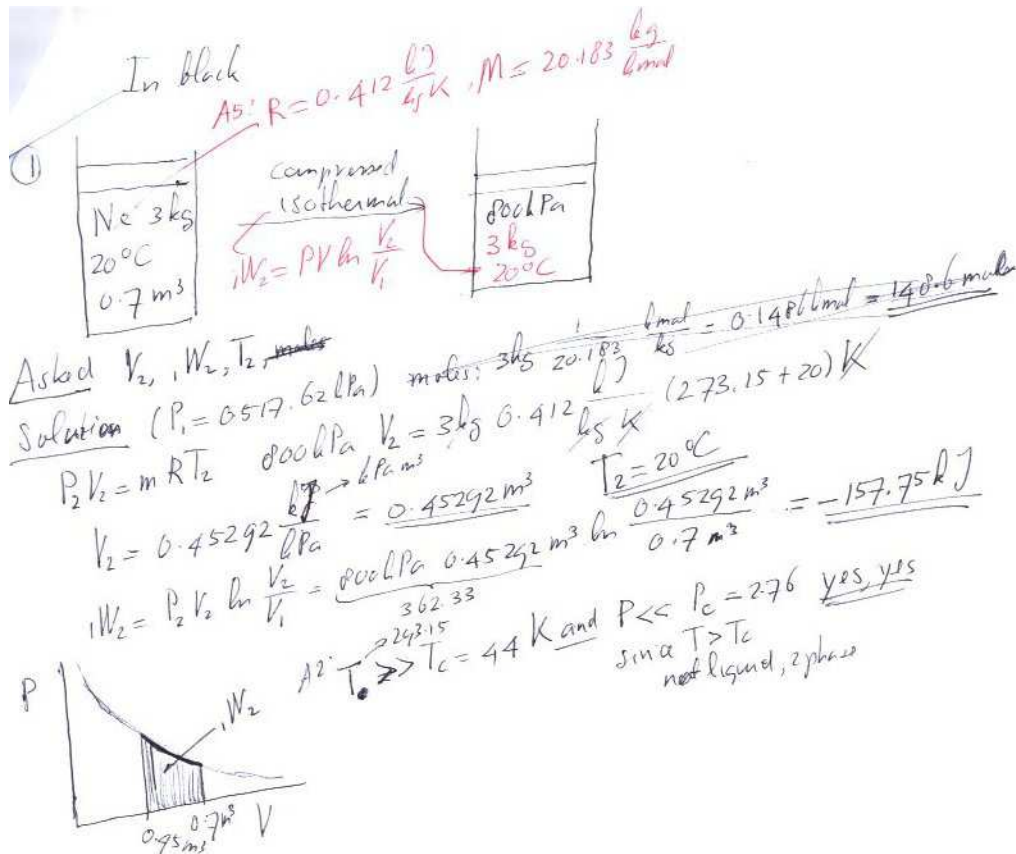 In black
A5: R = 0.412 kJ/kg K, M = 20.183 kg/kmol
①
Ne 3kg
20°C
0.7 m³
compressed
isothermal
₁W₂ = PV ln V₂/V₁
800 kPa
3 kg
20°C
Asked V₂, ₁W₂, T₂, moles
moles: 3kg 1/20.183 kmol/kg = 0.1486 kmol = 148.6 moles
Solution (P₁ = 0517.62 kPa)
P₂V₂ = mRT₂ 800kPa V₂ = 3kg 0.412 kJ/kg K (273.15 + 20) K
V₂ = 0.45292 kJ/kPa → kPa m³ = 0.45292 m³ T₂ = 20°C
₁W₂ = P₂V₂ ln V₂/V₁ = 800kPa 0.45292 m³ ln 0.45292 m³/0.7 m³ = -157.75 kJ
362.33
293.15
A2: T >> Tc = 44 K and P << Pc = 2.76 yes, yes
since T > Tc
not liquid, 2 phase
P
₁W₂
0.45 m³
0.7 m³
V